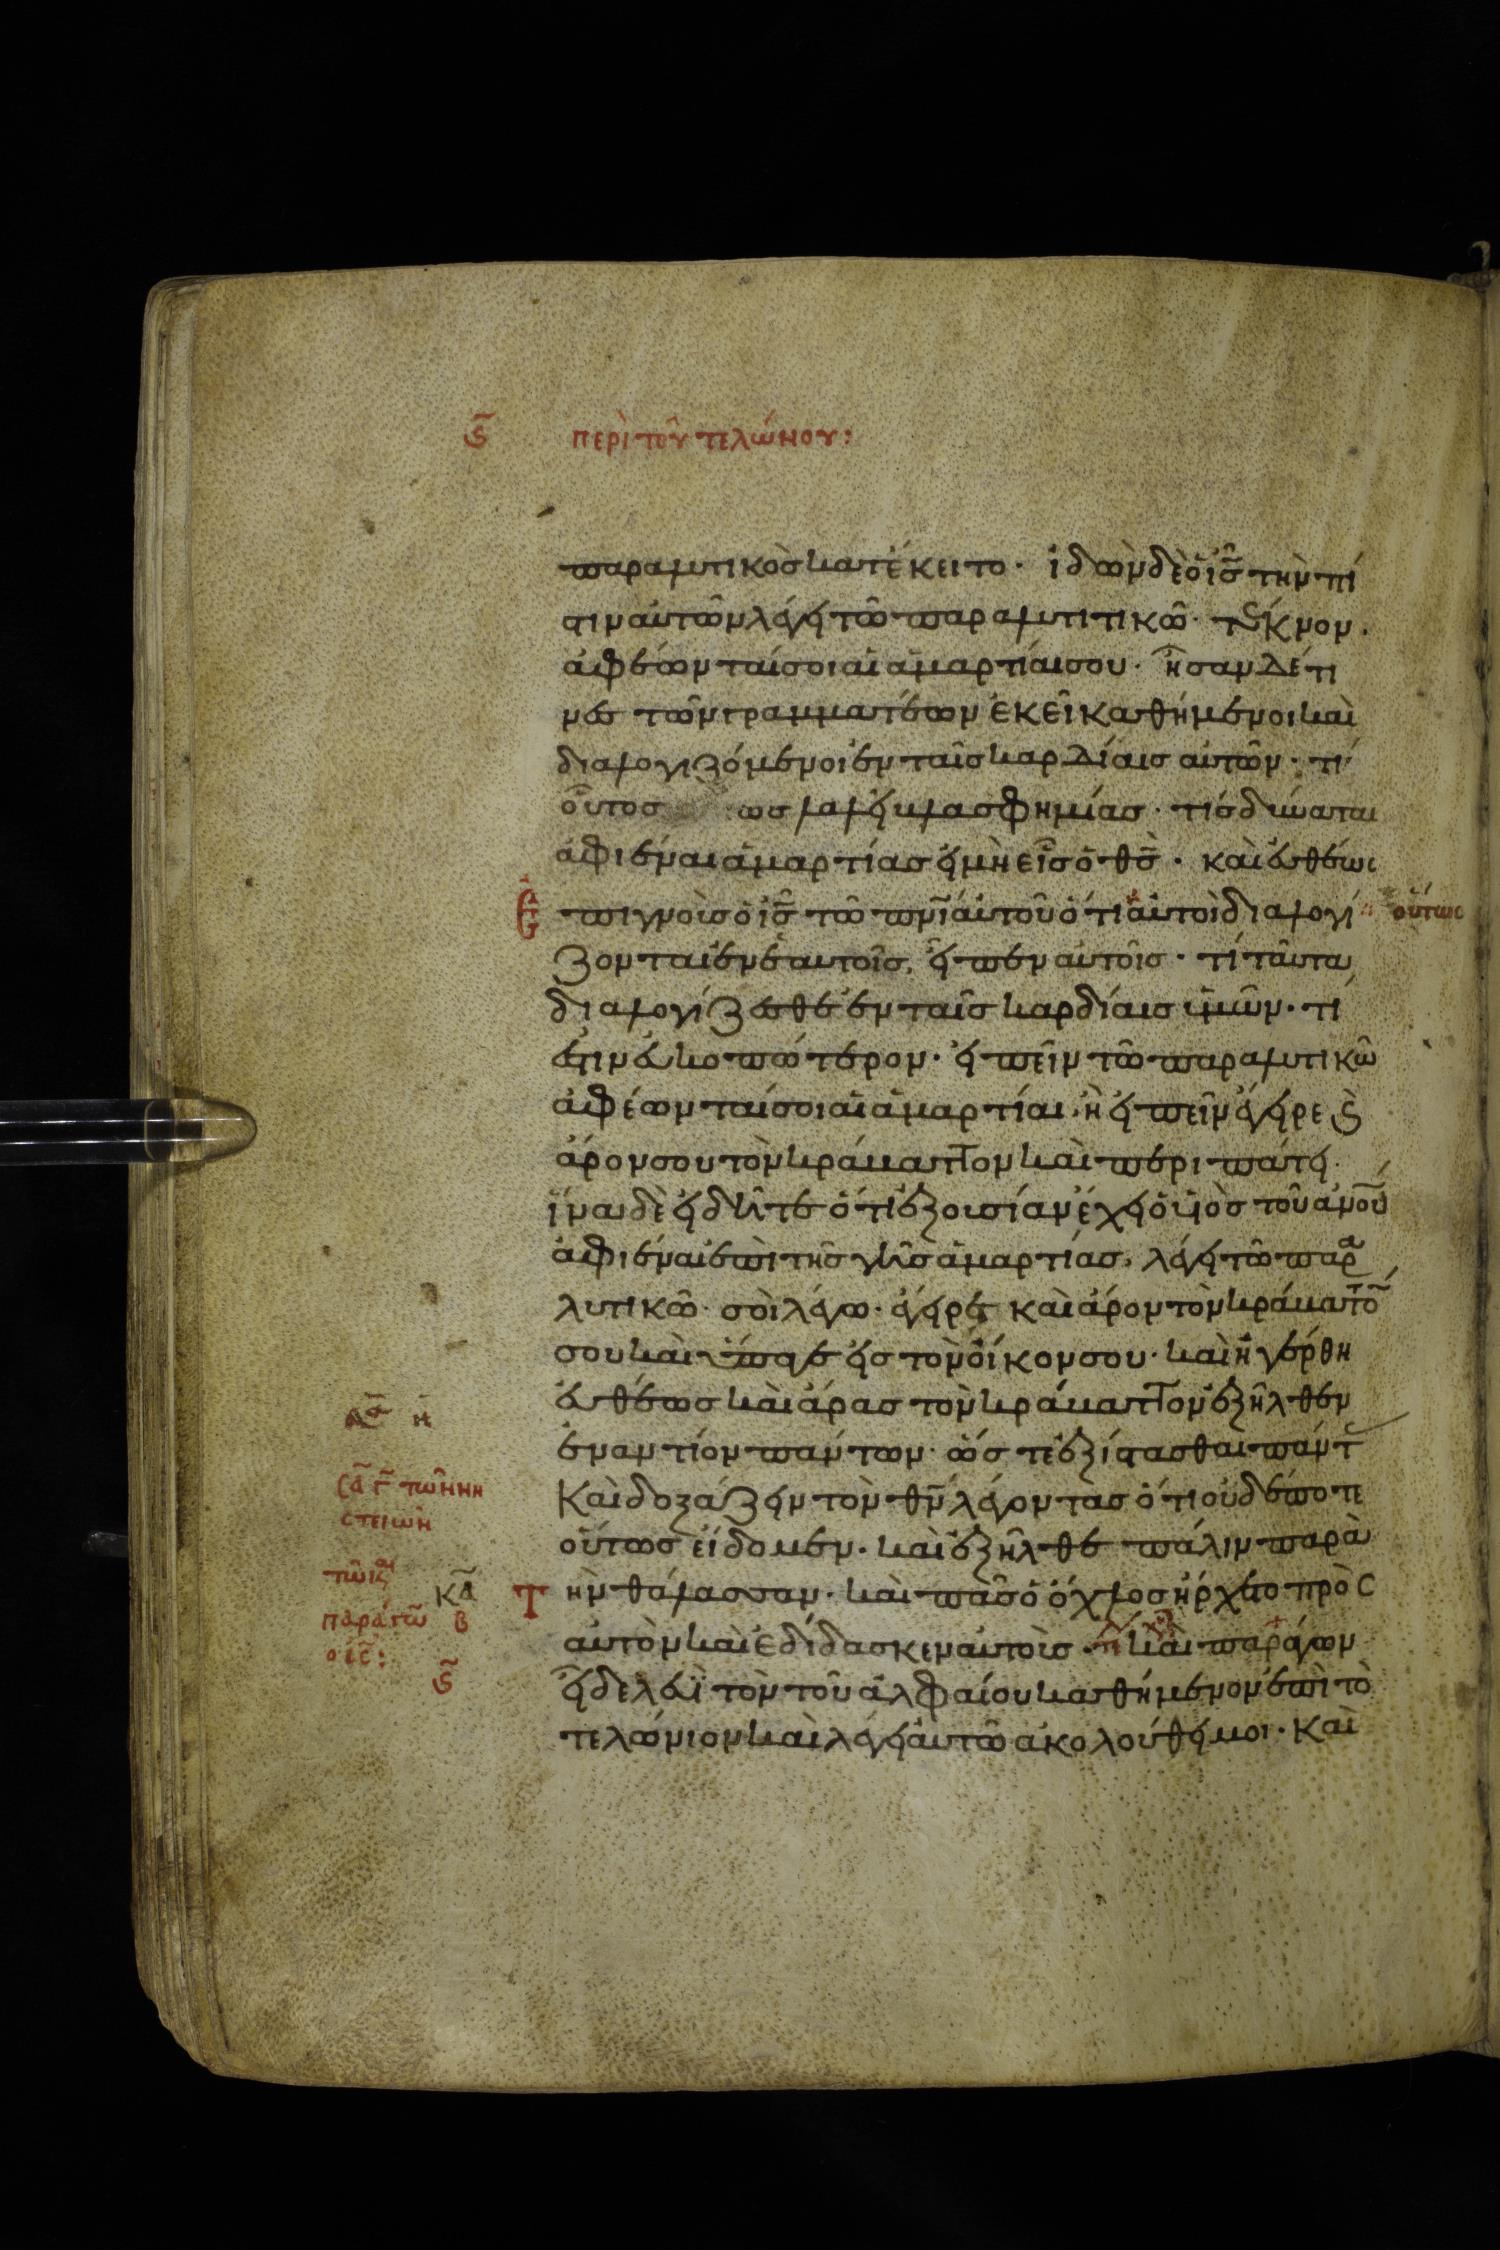 ϛ̅ περὶ τοῦ τελώνου:
παραλυτικὸσ κατέκειτο· ἰδὼν δὲ ὁ ἰ̅σ̅ τὴν πί
στιν αὐτῶν λέγει τῶ παραλυτιτικῶ· τέκνον.
ἀφέωνταί σοι αἱ ἁμαρτίαι σου· ἦσαν δέ τι
νεσ τῶν γραμματέων ἐκεῖ καθήμενοι καὶ
διαλογιζόμενοι ἐν ταῖσ καρδίαισ αὐτῶν· τί
οὗτοσ ωσ λαλεῖ βλασφημίασ· τίσ δύναται
ἀφιέναι ἁμαρτίασ εἰ μὴ εἷσ ὁ θ̅σ̅· καὶ εὐθέωσ
ἐπιγνοὺσ ὁ ἰ̅σ̅ τῶ π̅ν̅ι̅ αὐτοῦ ὅτι αὐτοὶ διαλογί
οὕτως
ζονται ἐν ἑαυτοῖσ, εἶπεν αὐτοῖσ· τί ταῦτα
διαλογίζεσθε ἐν ταῖσ καρδίαισ ὑμῶν· τί
ἐστιν εὐκοπώτερον· εἰπεῖν τῶ παραλυτικῶ
ἀφέωνταί σοι αἱ ἁμαρτίαι, ἢ εἰπεῖν ἔγειρε ϗ
ἆρον σου τὸν κράβαττον καὶ περιπάτει·
ἵνα δὲ εἰδῆτε ὅτι ἐξουσίαν ἔχει ὁ υἱὸσ τοῦ α̅ν̅ο̅υ̅
ἀφιέναι ἐπὶ τῆσ γῆσ ἁμαρτίασ, λέγει τῶ παρα
λυτικῶ· σοὶ λέγω· ἔγειρε καὶ ἆρον τὸν κράβαττο̅
σου καὶ ὕπαγε εἰσ τὸν οἶκον σου· καὶ ἠγέρθη
εὐθέωσ καὶ ἄρασ τὸν κράβαττον ἐξῆλθεν
ἐναντίον πάντων· ὥστε ἐξίστασθαι πάντ
καὶ δοξάζειν τὸν θ̅ν̅ λέγοντασ ὅτι οὐδέποτε
οὕτωσ εἴδομεν· καὶ ἐξῆλθε πάλιν παρὰ
Τὴν θάλασσαν· καὶ πᾶσ ὁ ὄχλοσ ἤρχετο πρὸς
κ̅α̅
β
αὐτὸν καὶ ἐδίδασκεν αὐτοὺσ· καὶ παράγων
ϛ̅ εἶδε λευῒ τὸν τοῦ ἀλφαίου καθήμενον ἐπὶ τὸ
τελώνιον καὶ λέγει αὐτῶ ἀκολούθει μοι· καὶ
σα̅ Γ̅ τῶν νη
στειῶν
τῶ κ
παράγω
ὁ ι̅ς̅: